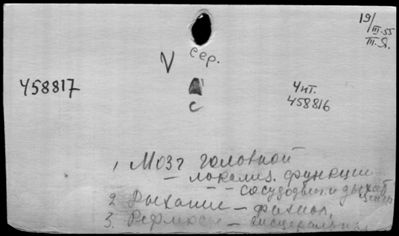 19/III-55
III-Я.
V сер.
458817
Чит.
458816
с
1 Мозг головной
— локализ. функции
— — сосудодвиг. и дыхат.
2 Дыхание — физиол.
3. Рефлексы — висцеральн.